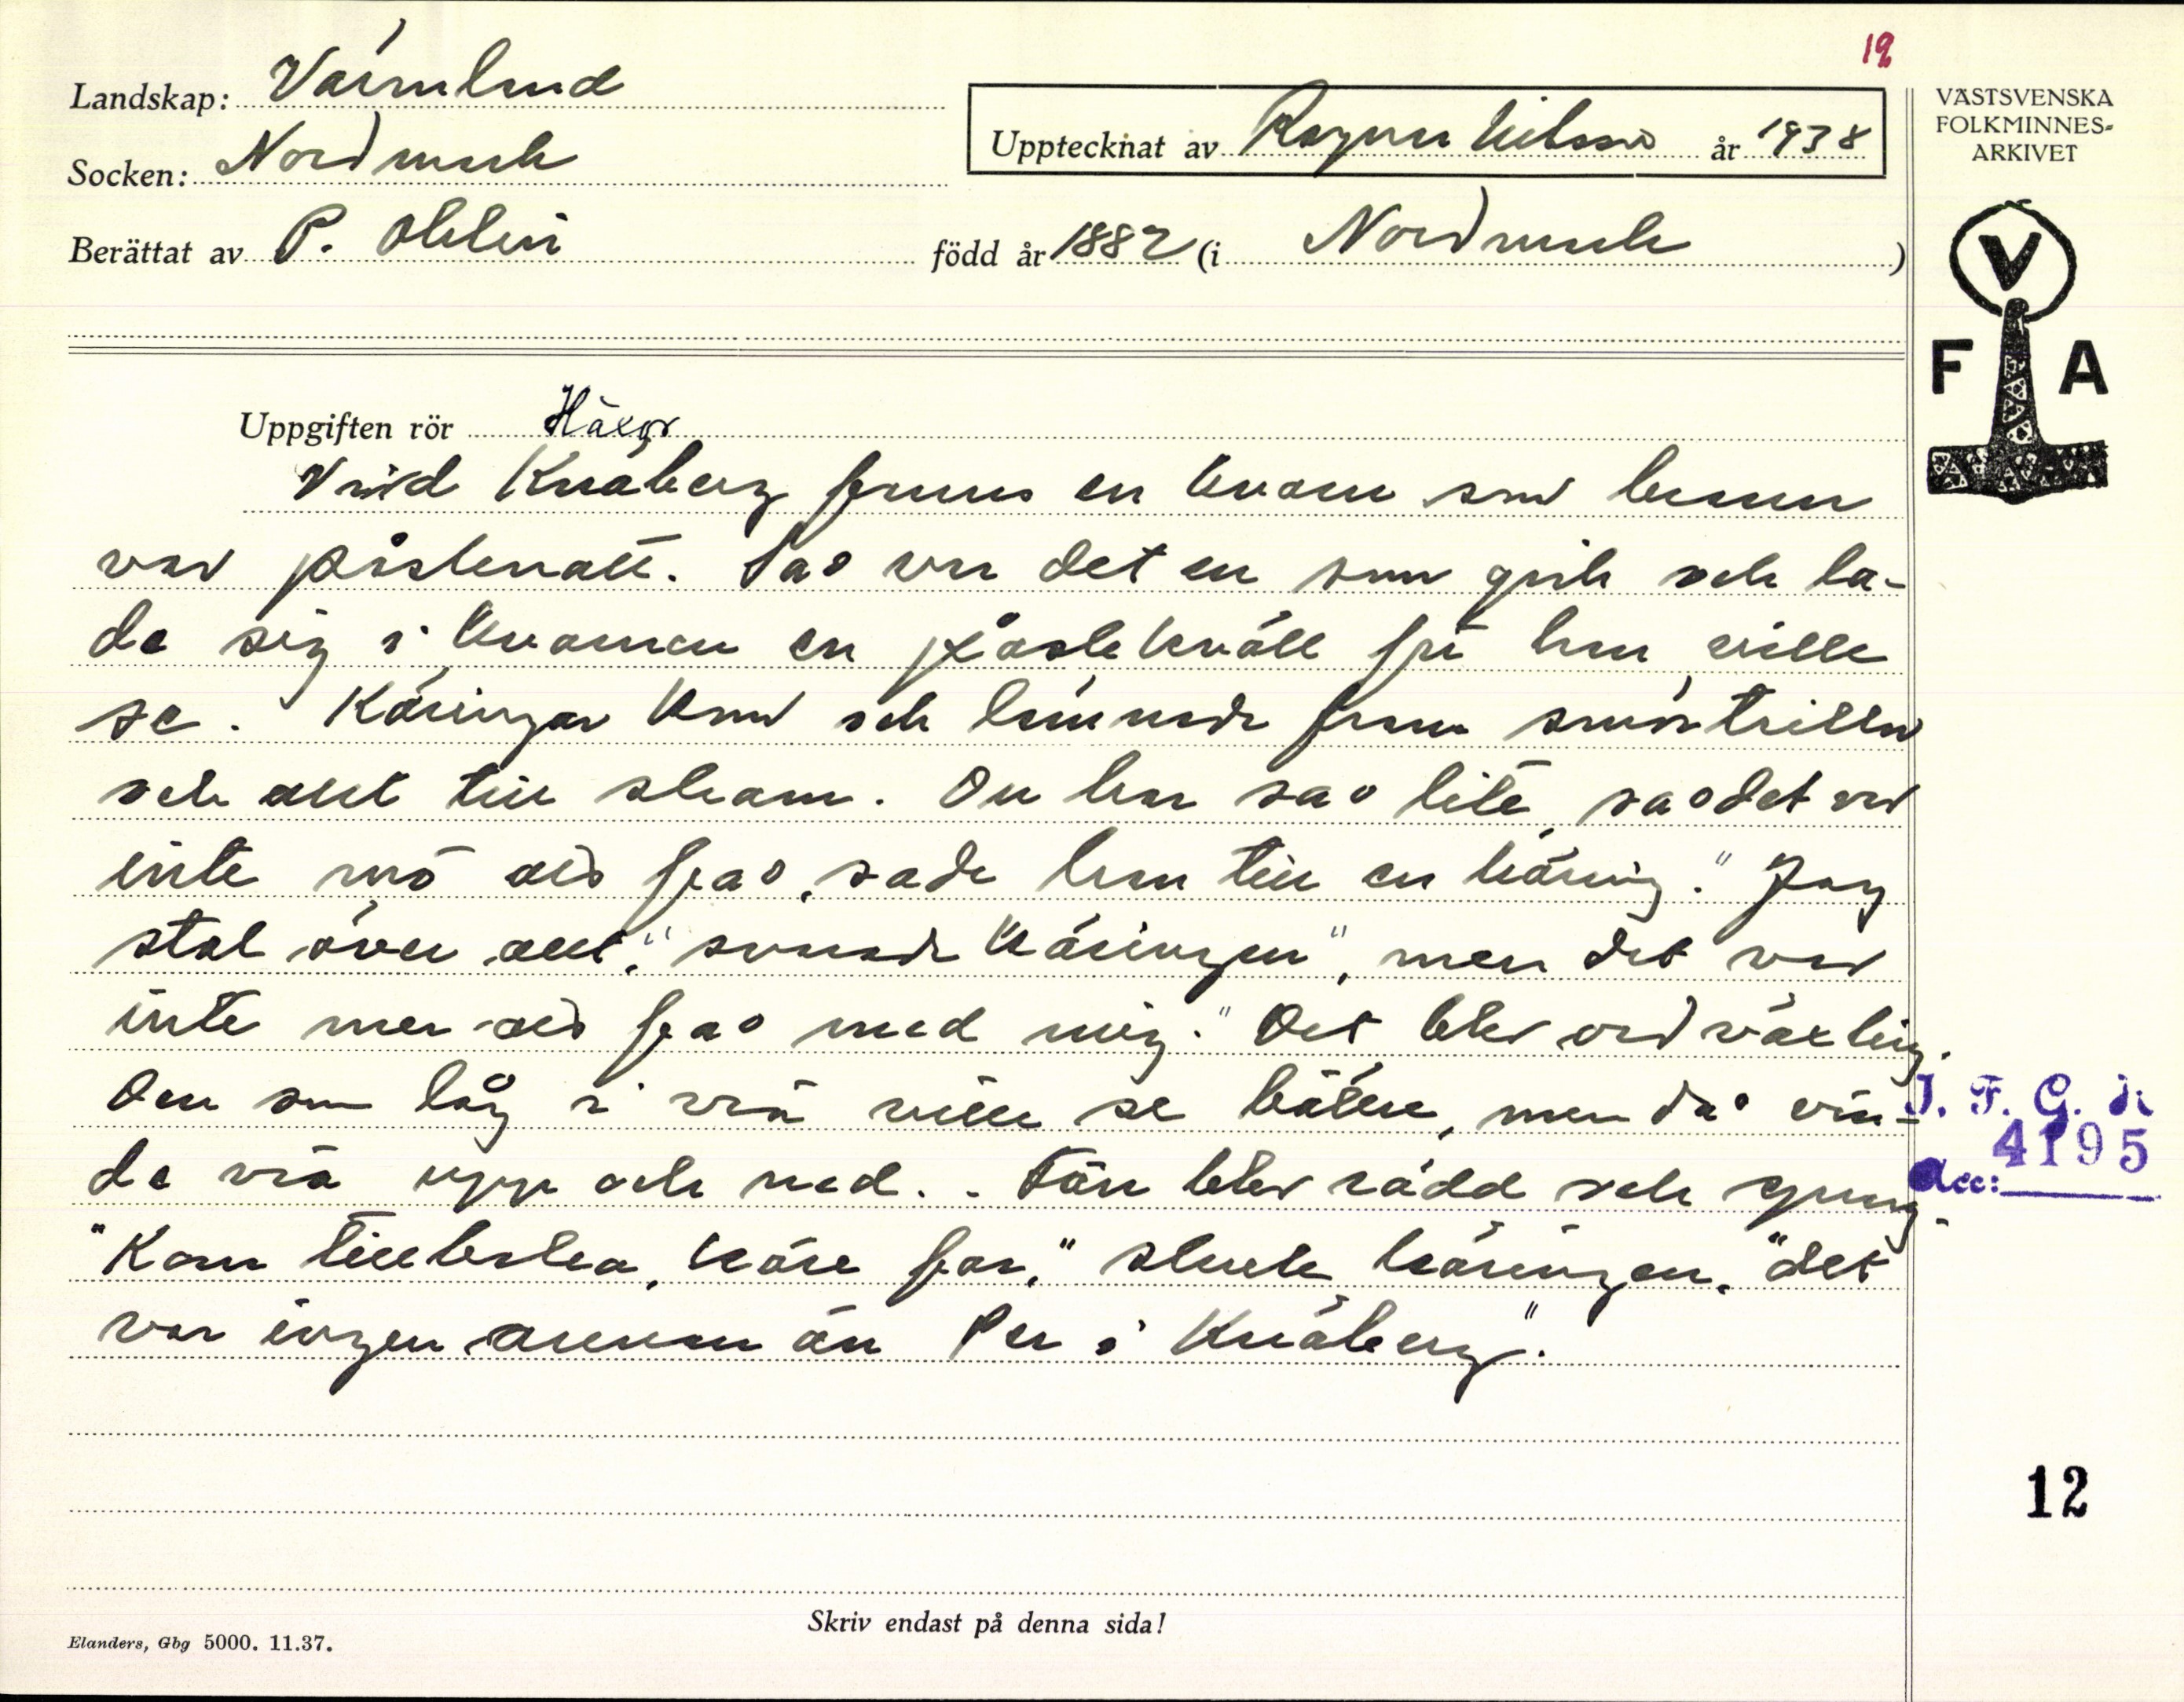 12
Landskap: Värmland
Socken: Nordmark
Upptecknat av Ragnar Nilsson år 1938
Berättat av P. Ohlin
född år 1882 (i Nordmark)
VÄSTSVENSKA
FOLKMINNES-
ARKIVET
V
F A
Uppgiften rör Häxor
Vid Knaberg fanns en kvarn som brann
var påskenatt. Sao var det en som gick och la-
de sig i kvarnen en påskkväll för han ville
se. Käringar kom och lämnade fram smörtrillor
och allt till skam. Du har sao lite, sao det var
inte mö ais fao, sade han till en käring. "Jag
stal över allt," svarade käringen", men det var
inte mer ais fao med mig." Det blev ordväxling.
Den som låg i vrå ville se bättre, men dao vän-
de vrå upp och ned. Fän blev rädd och sprang.
"Kom tillbaka, käre far," skrek käringen, "det
var ingen annan än Per i Knaberg".
I. F. G. :s
4195
Acc:
12
Skriv endast på denna sida!
Elanders, Gbg 5000. 11.37.